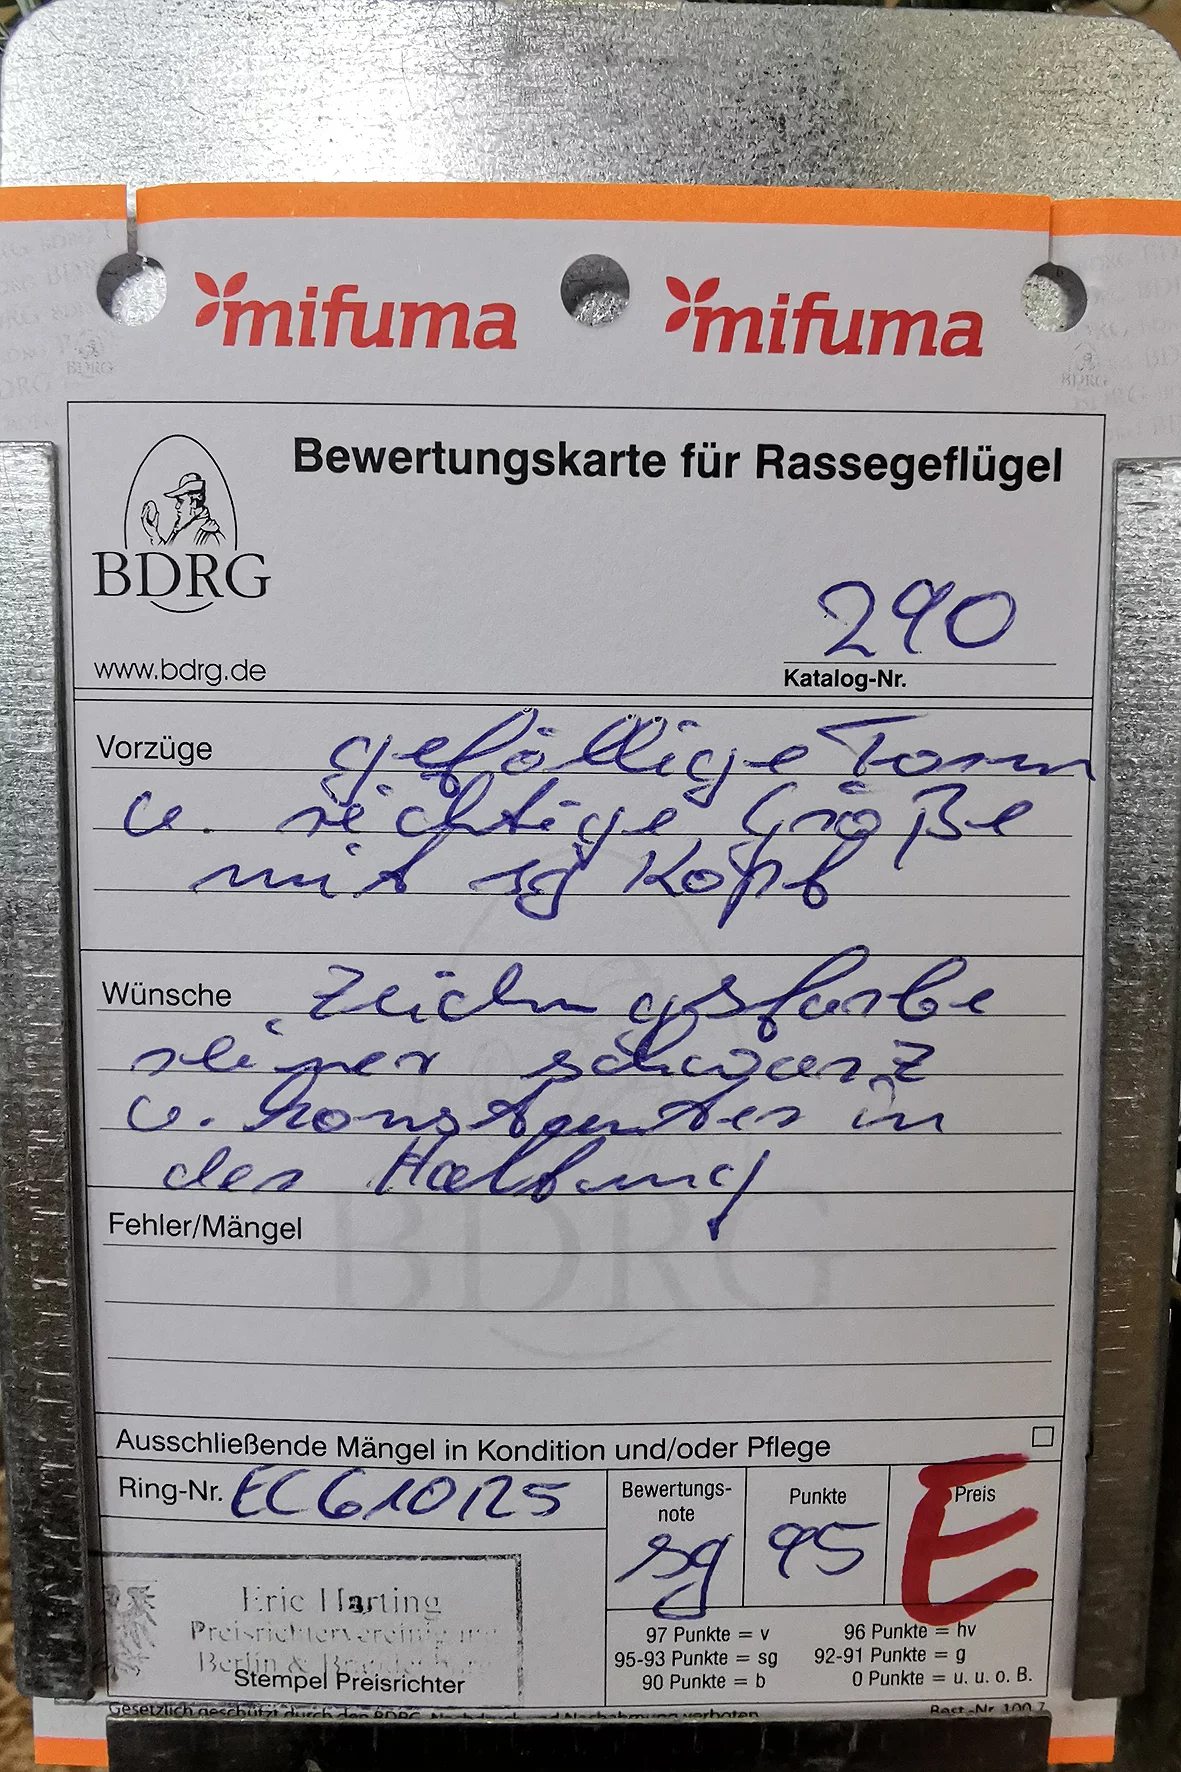 mifuma mifuma
Bewertungskarte für Rassegeflügel
BDRG
www.bdrg.de
290
Katalog-Nr.
Vorzüge gefällige Form
u. richtige Größe
mit sg Kopf
Wünsche Zeichngsfarbe
reiner schwarz
u. konstanter in
der Haltung
Fehler/Mängel
BDRG
Ausschließende Mängel in Kondition und/oder Pflege
Ring-Nr.
Bewertungs-
note
sg
Punkte
95
Preis
E
Eric Harting
Preisrichtervereinigung
Berlin &
Stempel Preisrichter
97 Punkte = v 96 Punkte = hv
95-93 Punkte = sg 92-91 Punkte = g
90 Punkte = b 0 Punkte = u. u. o. B.
Gesetzlich geschützt durch den BDRG, Nachdruck und Nachahmung verboten
Best.-Nr. 100.7